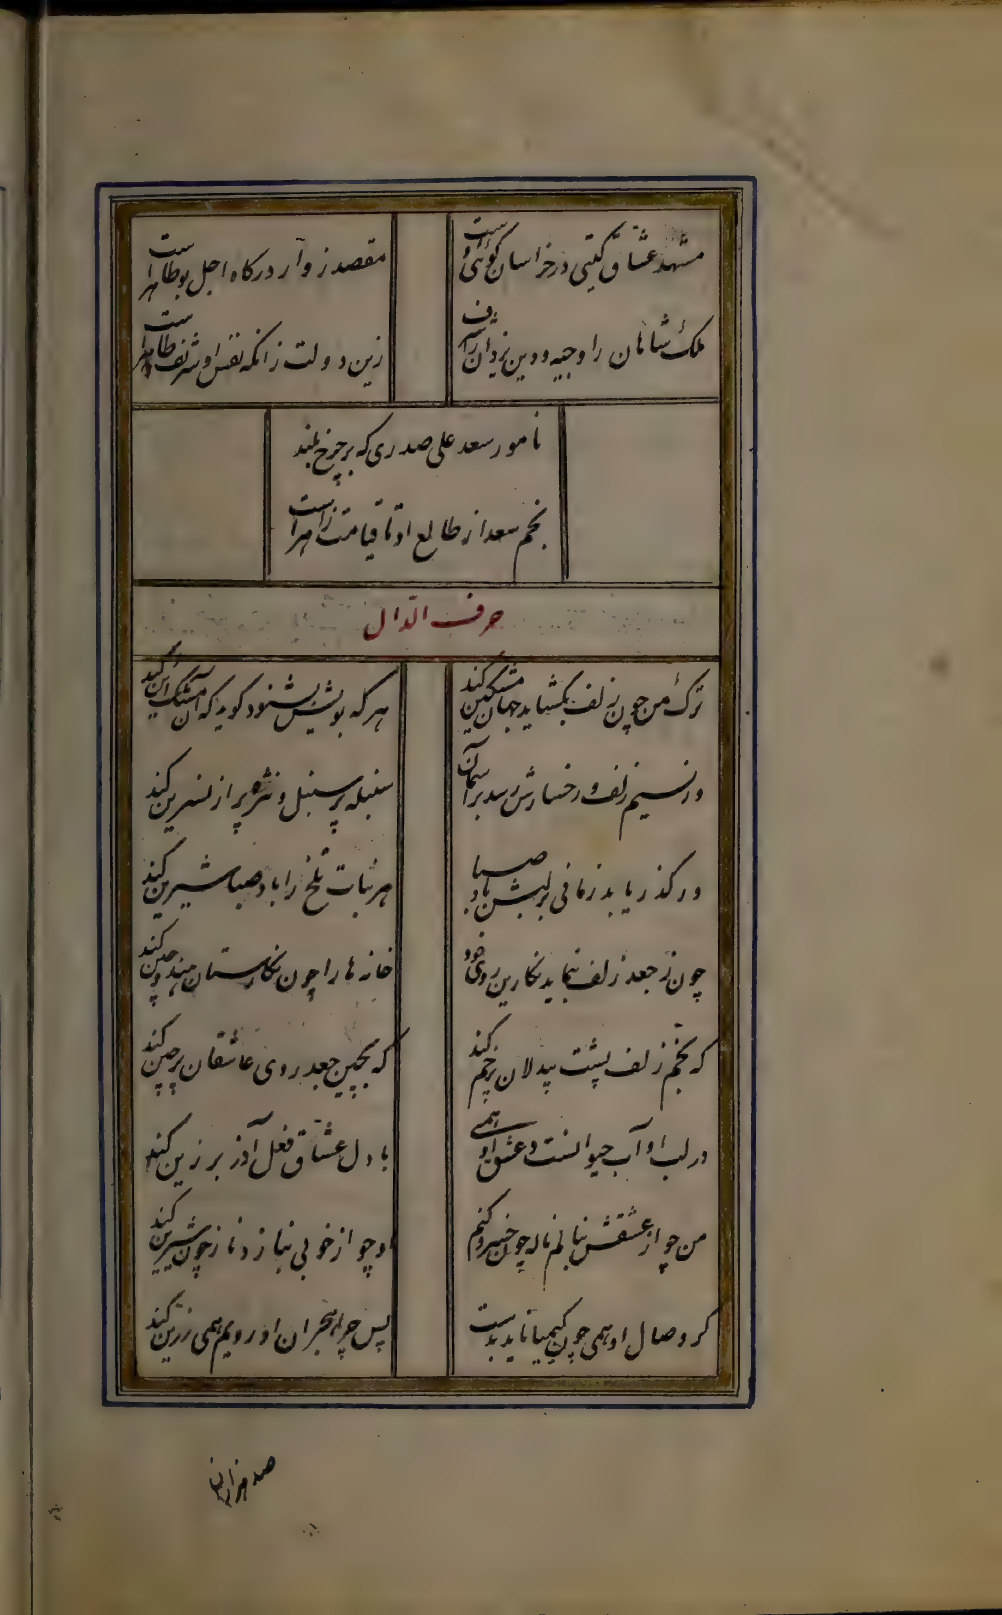 مشهد عشاق کیتی در خراسان کوی اوست
مقصد زوار درکاه اجل بوطاهراست
ملک شاهان را وجیه و دین یزدان را شرف
زین دولت زانکه نفس او شریف و طاهراست
نامور سعد علی صدری که بر چرخ بلند
نجم سعد از طالع او تا قیامت زاهراست
حرف الدال
ترک من چون زلف بکشاید جهان مشکین کند
هر که بویش بشنود کوید که آن مشک این کند
ور نسیم زلف و رخسارش رسد بر آسمان
سنبله پر سنبل و نثره پر از نسرین کند
ور کذر یابد زمانی بر لبش باد صبا
هر نبات تلخ را باد صبا شیرین کند
چون ز جعد زلف بنماید نکارین روی خود
خانه ها را چون نکارستان هند و چین کند
که بخم زلف پشت بیدلان پر خم کند
که بچین جعد روی عاشقان پر چین کند
در لب او آب حیوانست و عشق او همی
با دل عشاق فعل آذر برزین کند
من چو از عشقش بنالم ناله چون خسرو کنم
او چو از خوبی بنازد ناز چون شیرین کند
کر وصال او همی چون کیمیا ناید بدست
پس چرا هجران او رویم همی زرین کند
صد هزاران